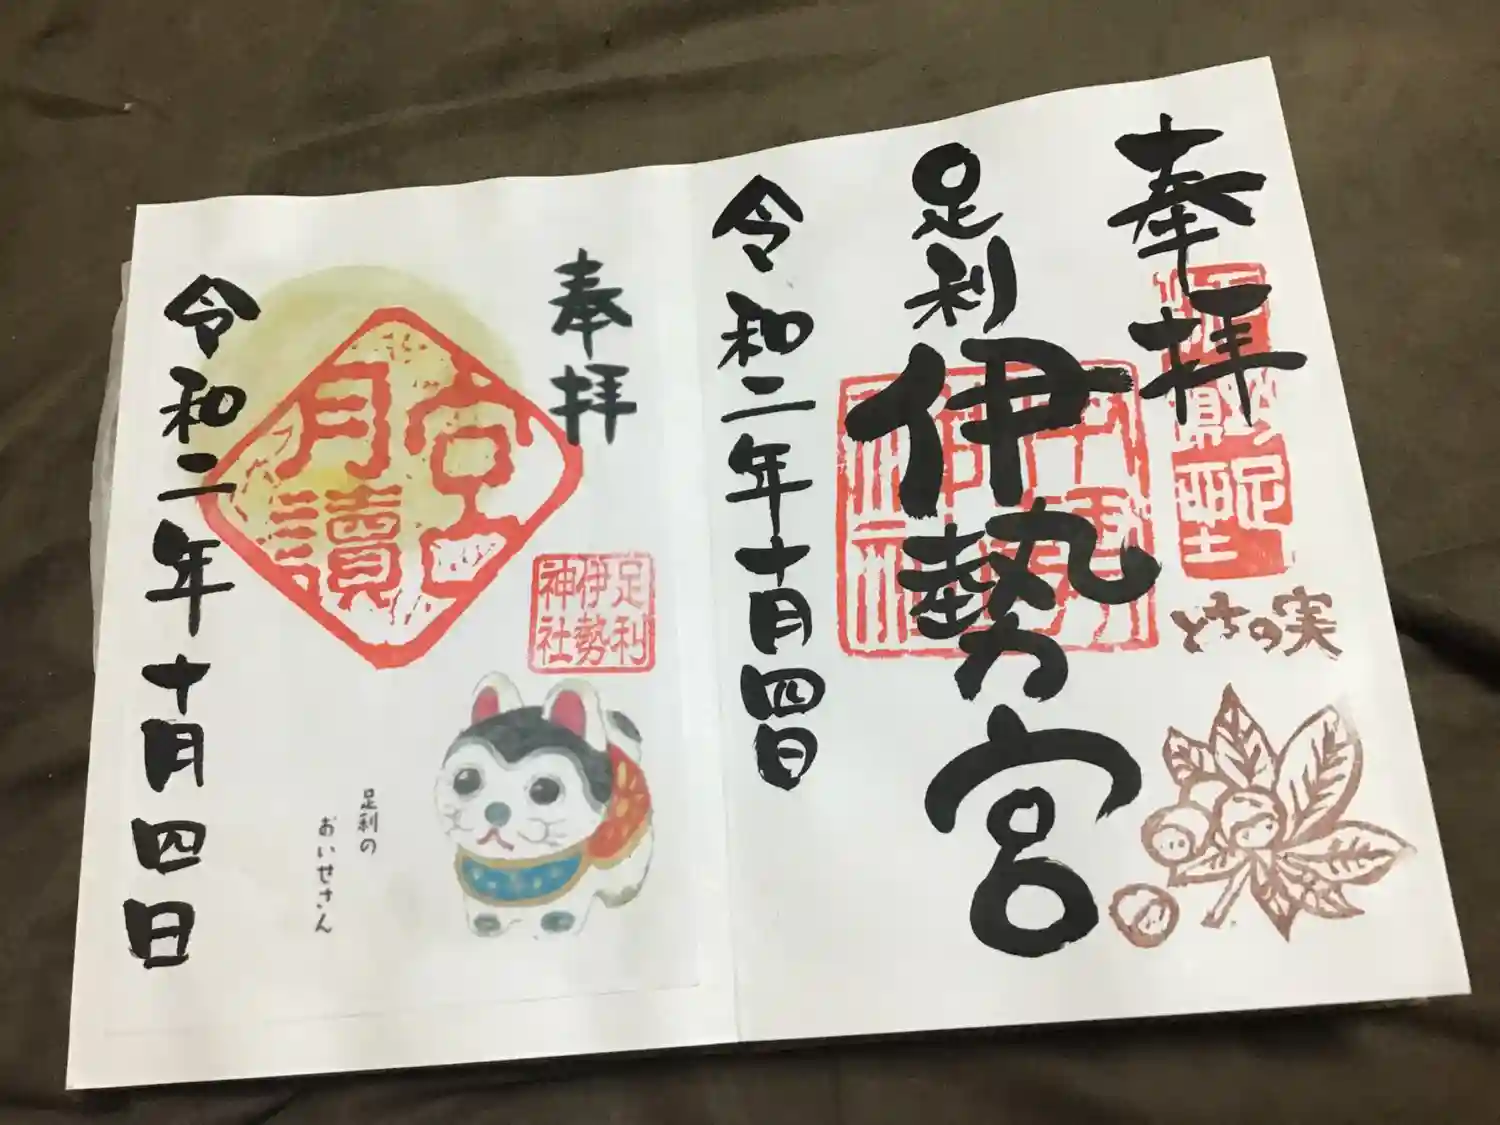 奉拝
足利伊勢宮
とちの実
令和二年十月四日
奉拝
宮
月讀
足利
伊勢
神社
足利の
おいせさん
令和二年十月四日